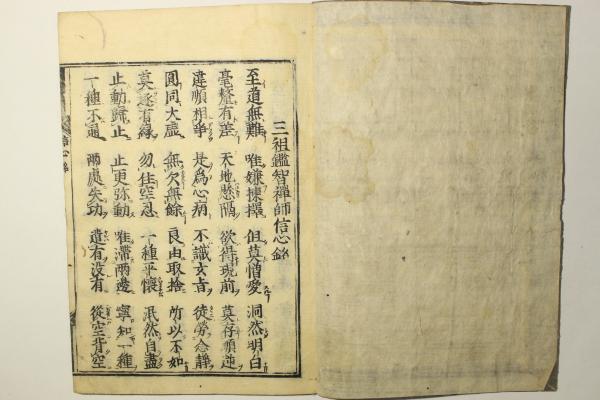 三祖鑑智禅師信心銘
至道無難 唯嫌揀擇 但莫憎愛 洞然明白
毫釐有差 天地懸隔 欲得現前 莫存順逆
違順相爭 是為心病 不識玄旨 徒勞念靜
圓同大虚 無欠無餘 良由取捨 所以不如
莫逐有縁 勿住空忍 一種平懷 泯然自盡
止動歸止 止更弥動 唯滯兩邊 寧知一種
一種不通 兩處失功 遣有没有 從空背空